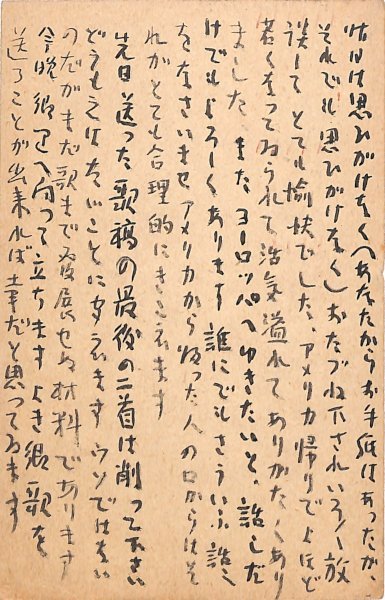 昨日は思ひがけなくあなたからお手紙はあつたが、
それでも思ひがけなくおたづね下されいろ〱放
談してとても愉快でした、アメリカ帰りでよほど
若くなつてゐられて活気溢れてありがたくあり
ました、またヨーロッパへゆきたいと、話しだ
けでもよろしくあります 誰にでもさういふ話を
をなさいませ アメリカから帰つた人の口からはそ
れがとても合理的にきこえます
先日送つた歌稿の最後の二首は削つて下さい
どうもえはたいことに思えます ウソではない
のだがまだ歌まで発展せぬ材料であります
今晩郷里へ向つて立ちます よき郷歌を
送ることが出来れば幸だと思つてゐます